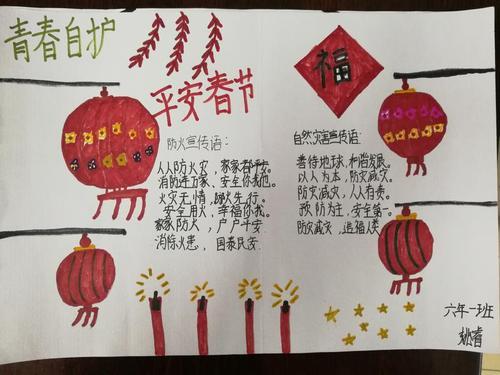 青春自护
平安春节
福
防火宣传语：
人人防火灾，家家都平安。
消防进万家、安全你我他。
火灾无情，防火先行。
安全用火，幸福你我。
家家防火，户户平安
消除火患，国泰民安
自然灾害宣传语：
善待地球，和谐发展。
以人为本，防灾减灾。
防灾减灾，人人有责。
预防为主，安全第一。
防灾减灾，造福人类
六年一班